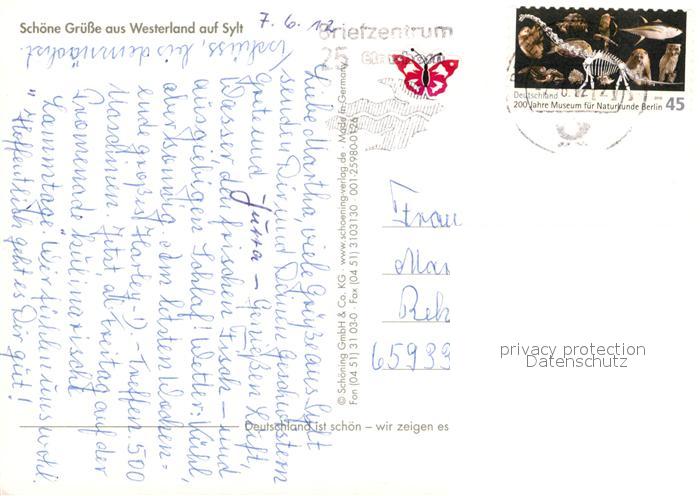 Schöne Grüße aus Westerland auf Sylt
7.6.12
Liebe Martha, viele Grüße aus Sylt
senden Dir und Deinen Geschwistern
Grite und Jutta – Genießen Luft,
Wasser, den frischen Fisch – und
ausgiebigen Schlaf! Wetter: Kühl,
aber sonnig. Am letzten Wochen=
end großes Harley-D.-Treffen. 500
Maschinen. Jetzt ab Freitag auf der
Promenade "kulinarische
Lammtage". Wir fühlen uns wohl.
Hoffentlich geht es Dir gut!
Tschüss, bis demnächst.
© Schöning GmbH & Co. KG · www.schoening-verlag.de · Made in Germany
Fon (04 51) 31 03-0 · Fax (04 51) 3103130 001-25980-0126
Deutschland ist schön – wir zeigen es
Briefzentrum
25
Deutschland
200 Jahre Museum für Naturkunde Berlin
45
Frau
Mar
Reh
65933
privacy protection
Datenschutz